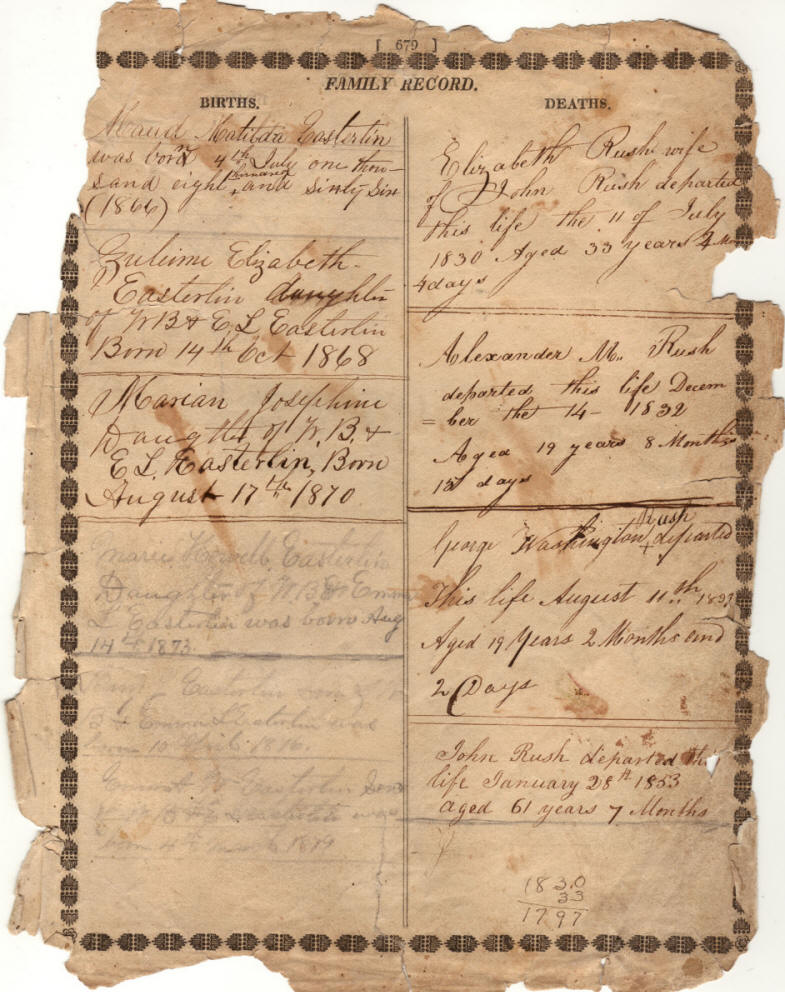 [ 679 ]
FAMILY RECORD.
BIRTHS.
Maud Matilda Easterlin
was born 4th July one thou-
sand eight hundred and Sixty Six
(1866)
Zulieme Elizabeth
Easterlin daughter
of W B & E. L Easterlin
Born 14th Oct 1868
Marian Josephine
Daughter of W. B. &
E L. Easterlin, Born
August 17th 1870
Marie Howell Easterlin
Daughter of W B & Emma
L Easterlin was born Aug
14th 1873.
Easterlin son of W
B & Emma L Easterlin was
born 10
Easterlin Son
of W B & E L Easterlin was
born 4th
DEATHS.
Elizabeth Rush wife
of John Rush departed
this life the 11 of July
1830 Aged 33 years 4 Mo
4 days
Alexander M. Rush
departed this life Decem
= ber the 14 - 1832
Aged 19 years 8 Months
15 days
George Washington Rush departed
This life August 11th 1833
Aged 19 Years 2 Months and
2 Days
John Rush departed this
life January 28th 1853
aged 61 years 7 Months
1830
33
1797